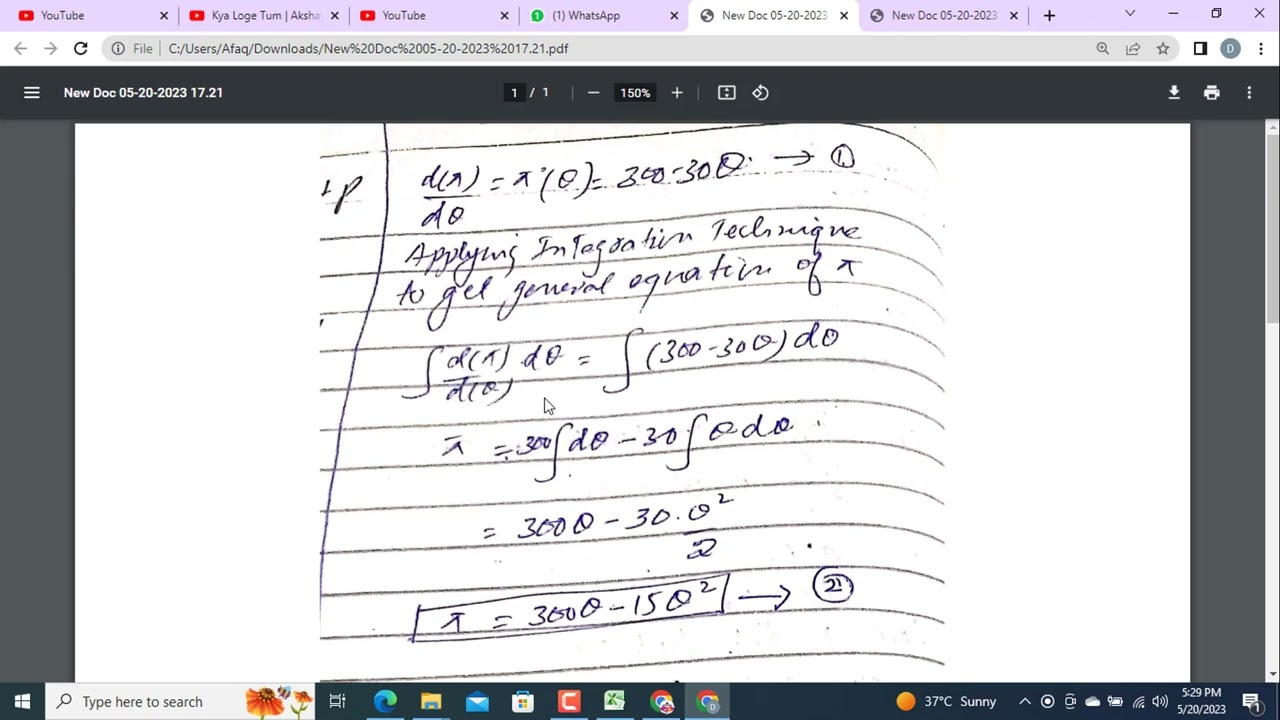 YouTube
Kya Loge Tum | Aksha
YouTube
(1) WhatsApp
New Doc 05-20-2023
New Doc 05-20-2023
File
C:/Users/Afaq/Downloads/New%20Doc%2005-20-2023%2017.21.pdf
D
New Doc 05-20-2023 17.21
1 / 1
150%
d(π)/dθ = π'(θ) = 300-30θ. → ①
Applying Integration Technique
to get general equation of π
∫ d(π)/d(θ) dθ = ∫(300-30θ) dθ
π = 300∫dθ - 30∫θdθ
= 300θ - 30.θ²/2
π = 300θ - 15θ² → ②
Type here to search
37°C Sunny
5:29 PM
5/20/2023